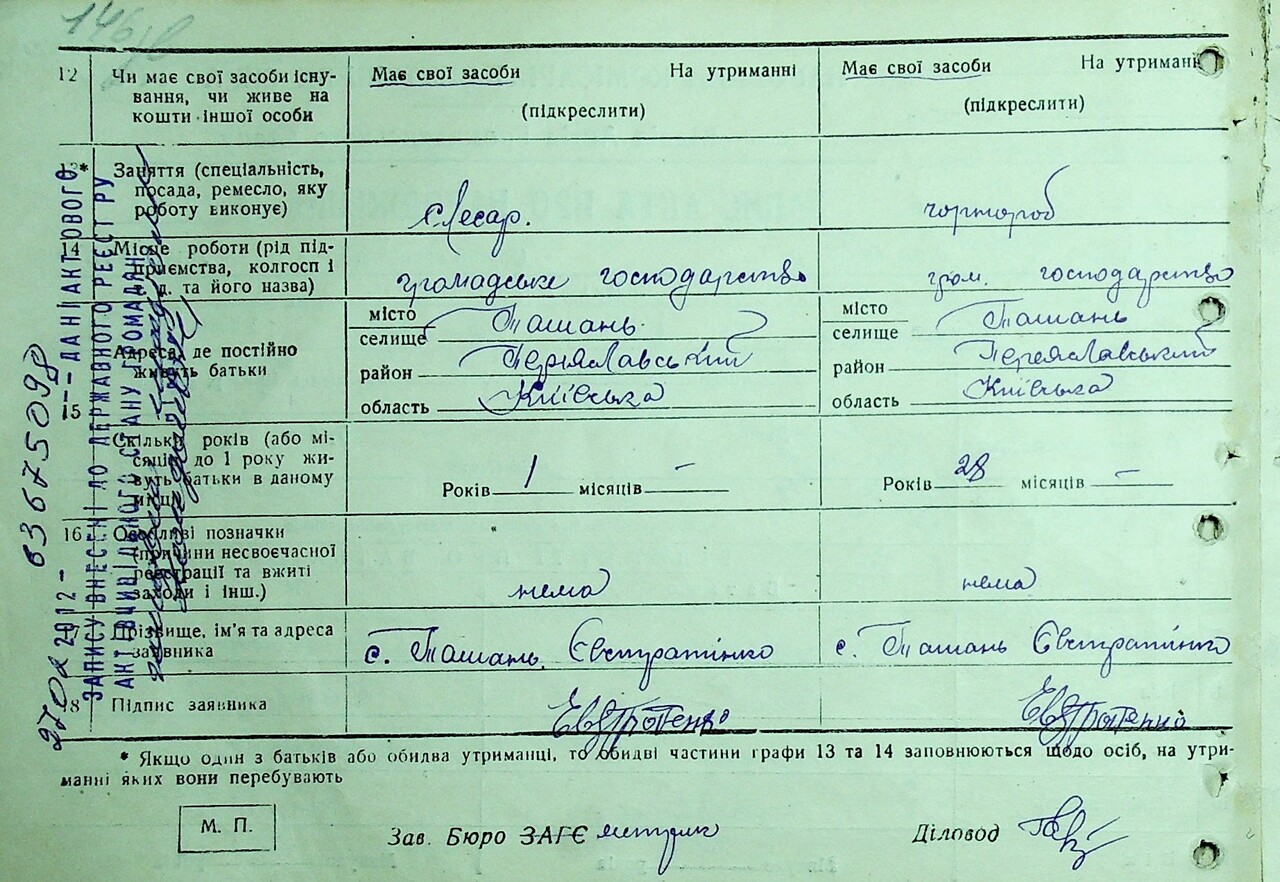 146
12 Чи має свої засоби існу- Має свої засоби На утриманні Має свої засоби На утриманн
вання, чи живе на
кошти іншої особи (підкреслити) (підкреслити)
13* Заняття (спеціальність,
посада, ремесло, яку
роботу виконує) слесар. чорнороб
14 Місце роботи (рід під-
приємства, колгосп і
т. д. та його назва) громадське господарство гром. господарство
15 Адреса, де постійно
живуть батьки
місто Ташань місто Ташань
селище селище
район Переяславський район Переяславський
область Київська область Київська
Скільки років (або мі-
сяців до 1 року жи-
вуть батьки в даному
місці) Років 1 місяців – Років 28 місяців –
16 Особливі позначки
(причини несвоєчасної
реєстрації та вжиті
заходи і інш.) нема нема
17 Прізвище, ім'я та адреса
заявника с. Ташань Євстратінко с. Ташань Євстратінко
18 Підпис заявника Евстротенко Евстратенко
* Якщо один з батьків або обидва утриманці, то обидві частини графи 13 та 14 заповнюються щодо осіб, на утри-
манні яких вони перебувають
М. П. Зав. Бюро ЗАГС Діловод
2012 – 63675098
– – – ДАНІ АКТОВОГО
ЗАПИСУ ВНЕСЕНІ ДО ДЕРЖАВНОГО РЕЄСТРУ
АКТІВ ЦИВІЛЬНОГО СТАНУ ГРОМАДЯН